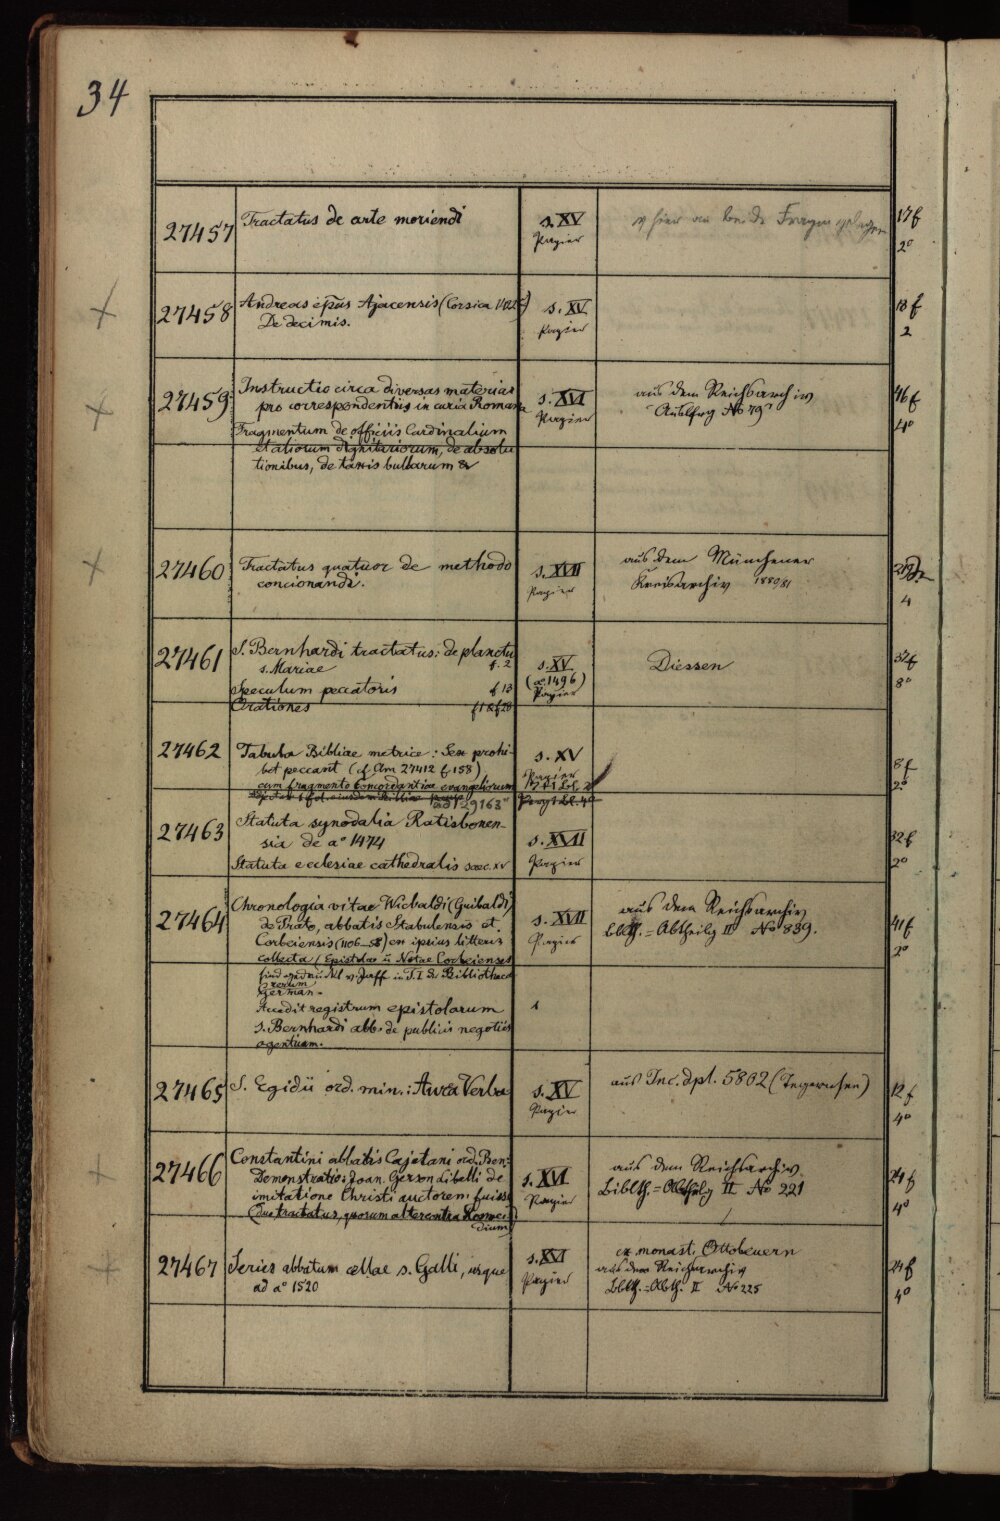 34
27457 Tractatus de arte moriendi s. XV 17 f
Papier 2°
27458 Andreas ep̄us Ajacensis (Corsica s. XV 18 f
De decimis. Papier 2
27459 Instructio circa diversas materias s. XVI aus dem Reichsarchiv 46 f
pro correspondentiis in curia Romana Papier No 79 4°
Fragmentum de officiis Cardinalium
et aliorum dignitariorum, de absolu
tionibus, de taxis bullarum &
27460 Tractatus quatuor de methodo s. XVII aus dem Münchener
concionandi. Papier Kreisarchiv 1880/81 4
27461 S. Bernhardi tractatus: de planctu s. XV Diessen 32 f
s. Mariae f. 2 (a° 1496) 8°
Speculum peccatoris f 13 Papier
Orationes f 1 & f 28
27462 Tabula Bibliae metrice: Sex prohi- s. XV 8 f
bet peccant (cf Clm 27412 f. 158) Papier 2°
cum fragmento Concordantiae evangeliorum
29163
27463 Statuta synodalia Ratisbonen- s. XVII 32 f
sia de a° 1474
Statuta ecclesiae cathedralis saec. XV Papier 2°
27464 Chronologia vitae Wicbaldi (Guibaldi) s. XVII aus dem Reichsarchiv 41 f
de Prato, abbatis Stabulensis et Papier Biblth.=Abtheilg II No 839. 2°
Corbeiensis (1106–58) ex ipsius litteris
collecta (Epistolae u Notae Corbeienses
sind v. Jaff in T. I d. Bibliotheca
rerum
German.
Accedit registrum epistolarum
s. Bernhardi abb. de publicis negotiis
agentium.
27465 S. Egidii ord. min.: Aurea Verba s. XV aus Inc. dpl. 5802 (Tegernsee) 12 f
Papier 4°
27466 Constantini abbatis Cajetani ord. Ben: s. XVI aus dem Reichsarchiv 24 f
Demonstratio: Joan. Gerson libelli de Papier Biblth.=Abthlg II No 221 4°
imitatione Christi auctorem fuisse
(duo tractatus, quorum alter contra Roswei
dium)
27467 Series abbatum cellae s. Galli, usque s. XVI ex monast. Ottobeuern 24 f
ad a° 1520 Papier aus dem Reichsarchiv 4°
Biblth.=Abth. II No 225